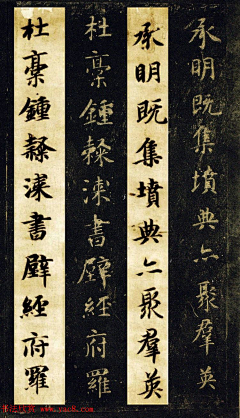 承明既集墳典亦聚羣英
承明既集墳典亦聚羣英
杜稾鍾隸漆書壁經府羅
杜稾鍾隸漆書壁經府羅